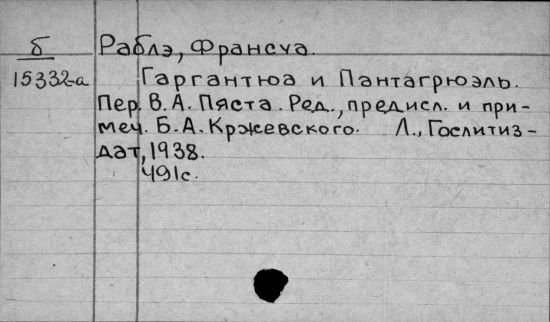 б
15332-а
Раблэ, Франсуа.
Гаргантюа и Пантагрюэль.
Пер. В. А. Пяста. Ред., предисл. и при-
меч. Б. А. Кржевского. Л., Гослитиз-
дат, 1938.
491с.